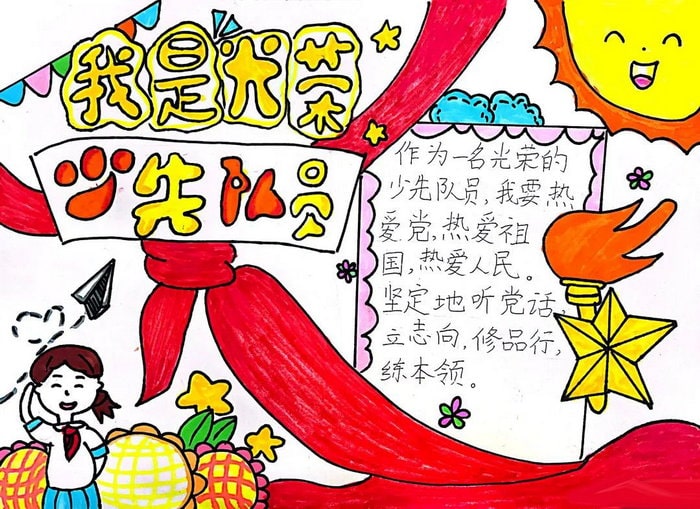 我是光荣
少先队员
作为一名光荣的
少先队员,我要热
爱党,热爱祖
国,热爱人民。
坚定地听党话,
立志向,修品行,
练本领。